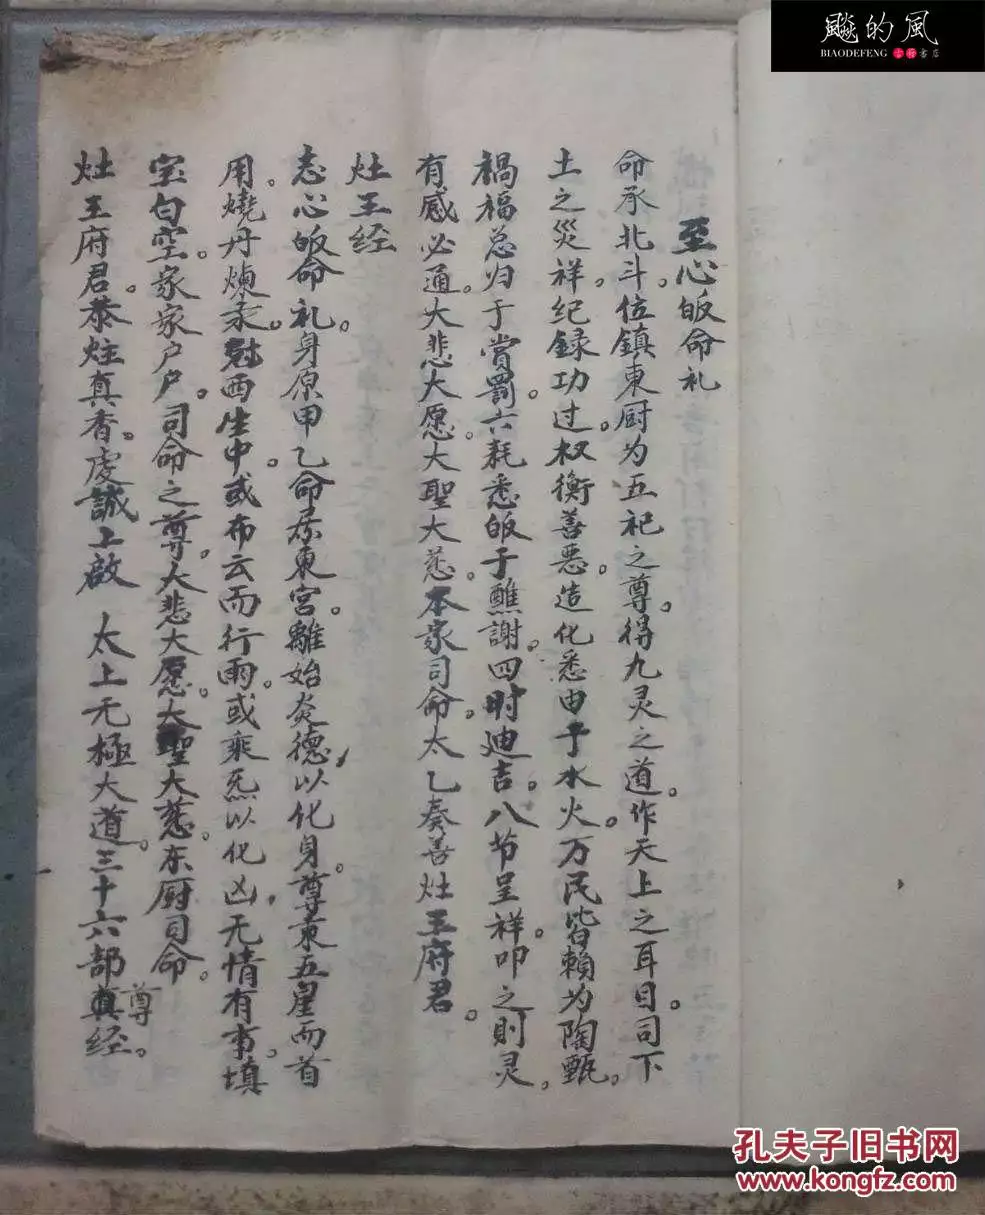 至心皈命礼
命承北斗。位鎮東厨为五祀之尊。得九灵之道。作天上之耳目。司下
土之災祥。纪録功过。权衡善惡。造化悉由于水火。万民皆賴为陶甄。
禍福总归于賞罰。六耗悉皈于醮謝。四时迪吉。八节呈祥。叩之则灵。
有感必通。大悲大愿。大聖大慈。本家司命。太乙奏善灶王府君。
灶王经
志心皈命礼。身原甲乙命系東宫。離始炎德，以化身。尊東五星而首
用。燒丹煉汞。西生中。或布云而行雨。或乘炁以化凶。无情有事。填
宝勾空。家家户户。司命之尊。大悲大愿。大聖大慈。东厨司命。
灶王府君。恭炷真香。虔誠上啟 太上无極大道。三十六部真经。
尊
飈的風
BIAODEFENG 書店
孔夫子旧书网
www.kongfz.com